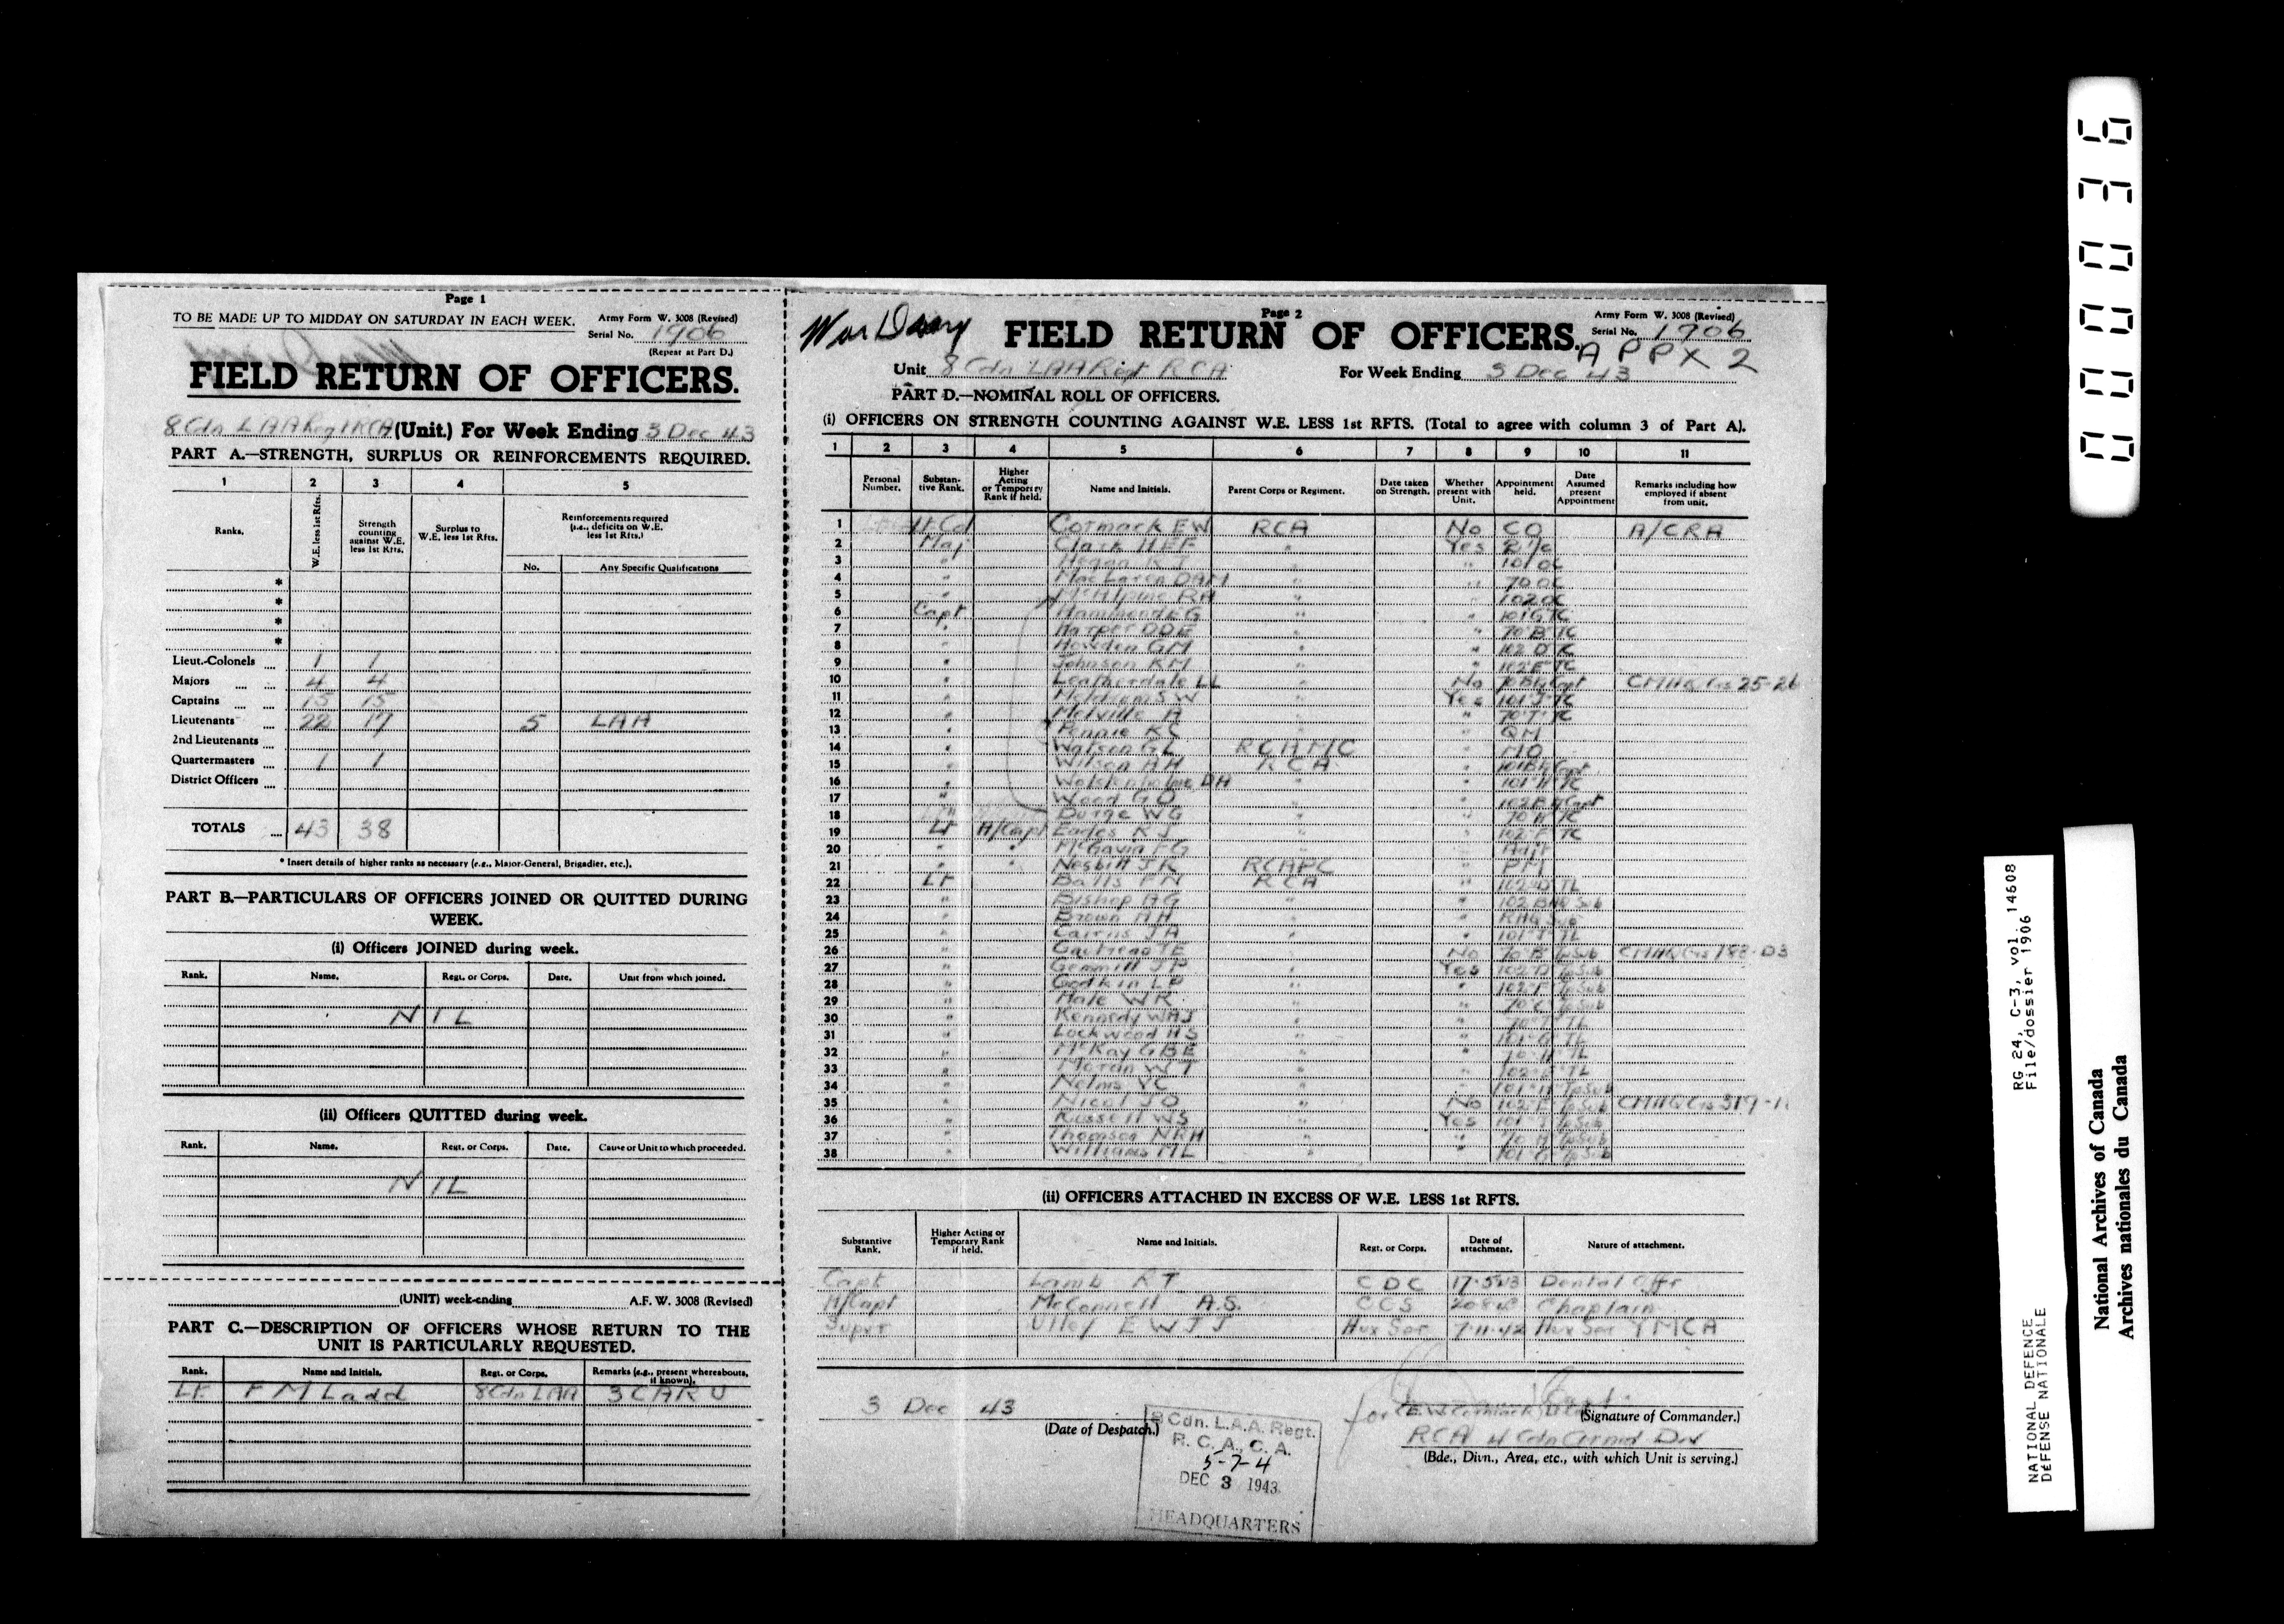 Page 1
TO BE MADE UP TO MIDDAY ON SATURDAY IN EACH WEEK.
Army Form W. 3008 (Revised)
Serial No. 1906
(Repeat at Part D.)
FIELD RETURN OF OFFICERS.
8 Cdn LAA Regt RCA (Unit.) For Week Ending 3 Dec 43
PART A.—STRENGTH, SURPLUS OR REINFORCEMENTS REQUIRED.
1 2 3 4 5
Ranks. W.E. less 1st Rfts. Strength counting against W.E. less 1st Rfts. Surplus to W.E. less 1st Rfts. Reinforcements required (i.e., deficits on W.E. less 1st Rfts.)
No. Any Specific Qualifications
*
*
*
*
Lieut.-Colonels 1 1
Majors 4 4
Captains 15 15
Lieutenants 22 17 5 LAA
2nd Lieutenants
Quartermasters 1 1
District Officers
TOTALS 43 38
* Insert details of higher ranks as necessary (e.g., Major-General, Brigadier, etc.).
PART B.—PARTICULARS OF OFFICERS JOINED OR QUITTED DURING WEEK.
(i) Officers JOINED during week.
Rank. Name. Regt. or Corps. Date. Unit from which joined.
NIL
(ii) Officers QUITTED during week.
Rank. Name. Regt. or Corps. Date. Cause or Unit to which proceeded.
NIL
(UNIT) week-ending A.F. W. 3008 (Revised)
PART C.—DESCRIPTION OF OFFICERS WHOSE RETURN TO THE UNIT IS PARTICULARLY REQUESTED.
Rank. Name and Initials. Regt. or Corps. Remarks (e.g., present whereabouts, if known).
Lt. F M Ladd 8 Cdn LAA 3 CARU
War Diary
Page 2
FIELD RETURN OF OFFICERS.
Army Form W. 3008 (Revised)
Serial No. 1906
APPX 2
Unit 8 Cdn LAA Regt RCA For Week Ending 3 Dec 43
PART D.—NOMINAL ROLL OF OFFICERS.
(i) OFFICERS ON STRENGTH COUNTING AGAINST W.E. LESS 1st RFTS. (Total to agree with column 3 of Part A).
1 2 3 4 5 6 7 8 9 10 11
Personal Number. Substantive Rank. Higher Acting or Temporary Rank if held. Name and Initials. Parent Corps or Regiment. Date taken on Strength. Whether present with Unit. Appointment held. Date Assumed present Appointment Remarks including how employed if absent from unit.
1 Lt Col Cormack EW RCA No CO A/CRA
2 Maj Clark HEF " Yes 2 i/c
3 " Hogan " " 101 OC
4 " MacLaren DAM " " 70 OC
5 " McAlpine RH " " 102 OC
6 Capt Hammond EG " " 101 G TC
7 " Harper DDE " " 70 B TC
8 " Howden GM " " 102 D TC
9 " Johnson KM " " 102 E TC
10 " Leatherdale LL " No 70 Bty Capt CMHQ Crs 25-26
11 " Meldrum SW " Yes 101 J TC
12 " Melville A " " 70 TC
13 " Pennie KC " " QM
14 " Watson GL RCAMC " MO
15 " Wilson AH RCA " 101 Bty Capt
16 " Wolstenholme DH " " 101 H TC
17 " Wood GO " " 102 Bty Capt
18 WG " " 70 TC
19 Lt A/Capt Eades KJ " " 102 F TC
20 " " McGavin FG " " Adjt
21 " " Nesbitt JK RCAPC " PM
22 Lt Balls FN RCA " 102 D TL
23 " Bishop AG " " 102 BHQ Sub
24 " Brown AH " " RHQ Sub
25 " Cairns JA " " 101 J TL
26 " " No 70 B Tp Sub CMHQ Crs
27 " Gemmill JP " Yes 102 D Tp Sub
28 " Godkin LP " " 102 F Tp Sub
29 " Hale WR " " 70 C Tp Sub
30 " Kennedy WHJ " " 70 TL
31 " Lockwood HS " " 101 G TL
32 " McKay GBE " " 70 TL
33 " Moran WT " " 102 TL
34 " Nelms VC " " 101 H Tp Sub
35 " Nicol JO " No 102 Tp Sub CMHQ Crs
36 " Russell WS " Yes 101 J Tp Sub
37 " Thomson NRH " " 70 Tp Sub
38 " Williams ML " " 101 G Tp Sub
(ii) OFFICERS ATTACHED IN EXCESS OF W.E. LESS 1st RFTS.
Substantive Rank. Higher Acting or Temporary Rank if held. Name and Initials. Regt. or Corps. Date of attachment. Nature of attachment.
Capt Lamb RT CDC 17-5-43 Dental Offr
H/Capt McConnell A.S. CCS Chaplain
Super Utley E W J J Aux Ser 7-11-42 Aux Ser YMCA
3 Dec 43
(Date of Despatch.)
8 Cdn. L.A.A. Regt.
R. C. A., C. A.
5-7-4
DEC 3 1943
HEADQUARTERS
Capt.
for (Signature of Commander.)
RCA 4 Cdn Armd Div
(Bde., Divn., Area, etc., with which Unit is serving.)
000036
RG 24, C-3, vol. 14608
File/dossier 1906
NATIONAL DEFENCE
DÉFENSE NATIONALE
National Archives of Canada
Archives nationales du Canada